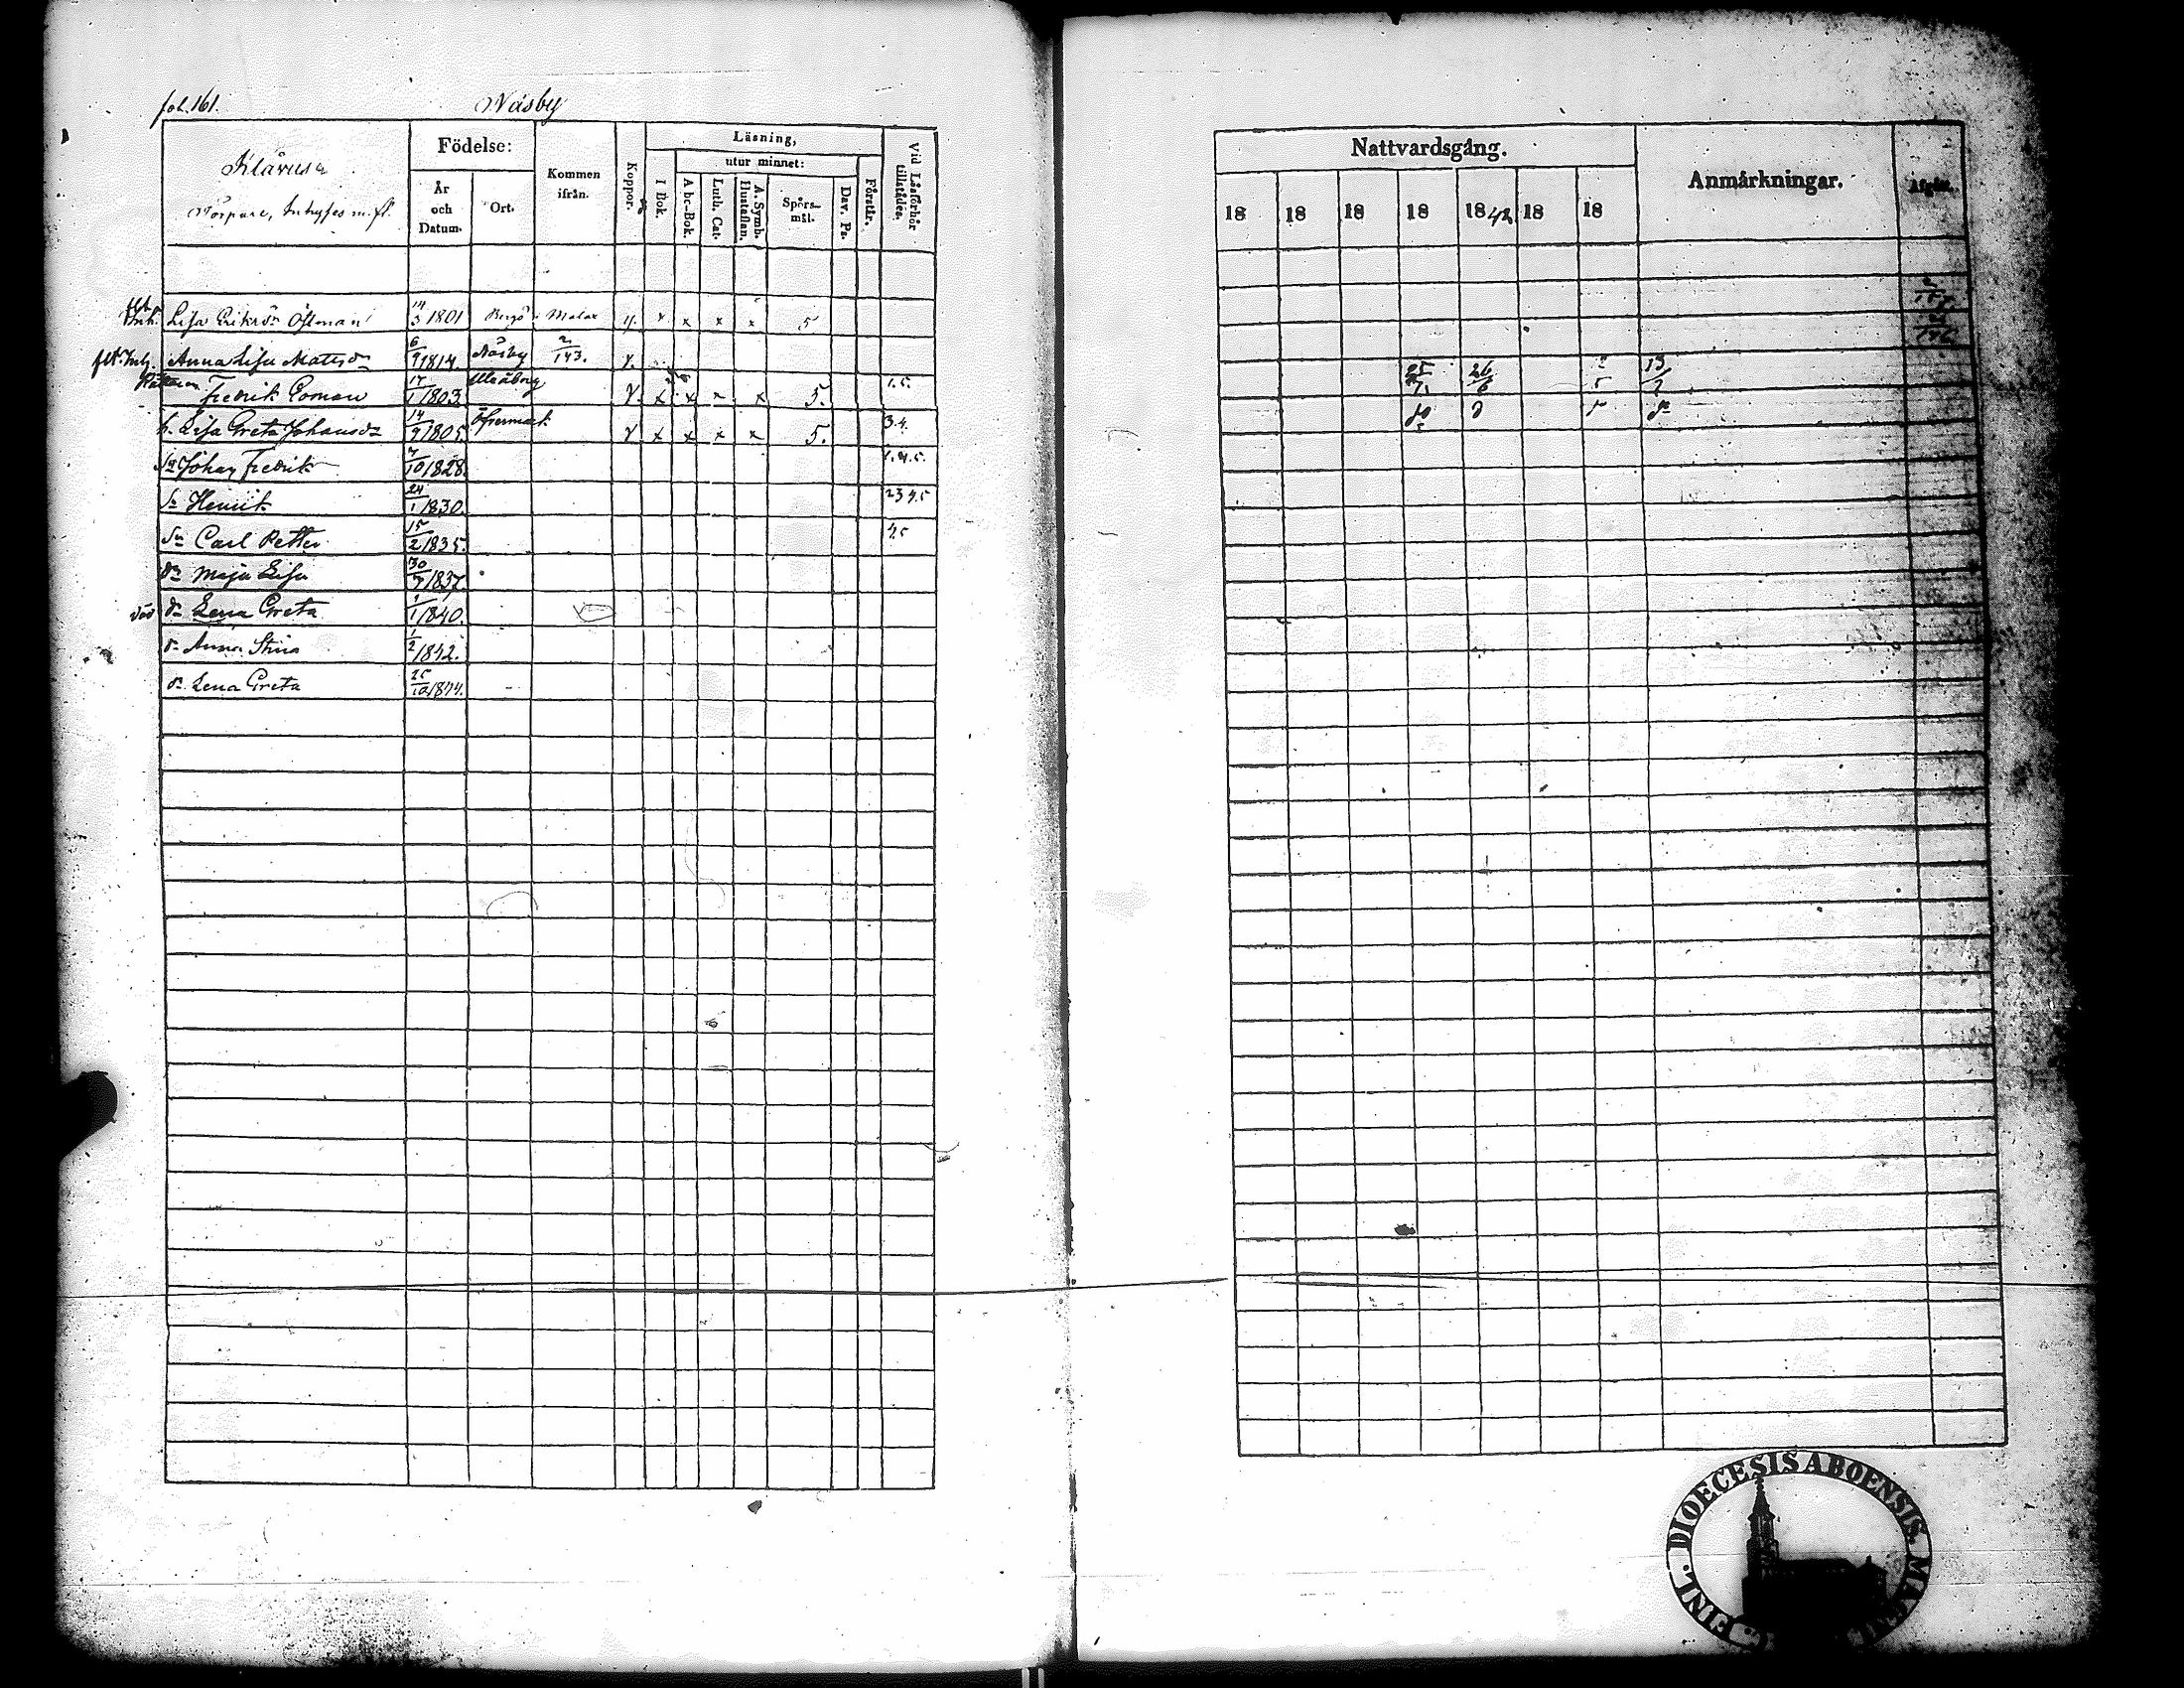 fol. 161. Näsby
Klåvus
Torpare, Inhyses m. fl.
Födelse:
År och Datum.
Ort.
Kommen ifrån.
Koppor.
Läsning,
utur minnet:
I Bok.
A bc-Bok.
Luth. Cat.
A. Symb. Hustaflan.
Spörs-mål.
Dav. Ps.
Förstår.
Vid Läsförhör tillstädes.
Nattvardsgång.
18 18 18 18 1842 18 18
Anmärkningar.
Afgått.
Inh. Lisa Eriksdr Östman 14/3 1801 Bergö Malax x x x x 5
flt. Inh. Anna Lisa Mattsdr 6/9 1814. Näsby 2/143.
Fredrik Eoman 17/1 1803. Uleåborg x x x x 5. 1.5. 26/6 13/7
h. Lisa Greta Johansdr 14/9 1805. Öfvermark x x x x 5. 3.4.
Sn Johan Fredrik 7/10 1828. 1.4.5.
Sn Henrik 24/1 1830. 2 3 4.5
Sn Carl Petter 15/2 1835. 4.5
dr Maja Lisa 30/7 1837.
död dr Lena Greta 1/1 1840.
dr Anna Stina 1/2 1842.
dr Lena Greta 25/10 1844.
FINL. DIOECESIS ABOENSIS. MAGNI